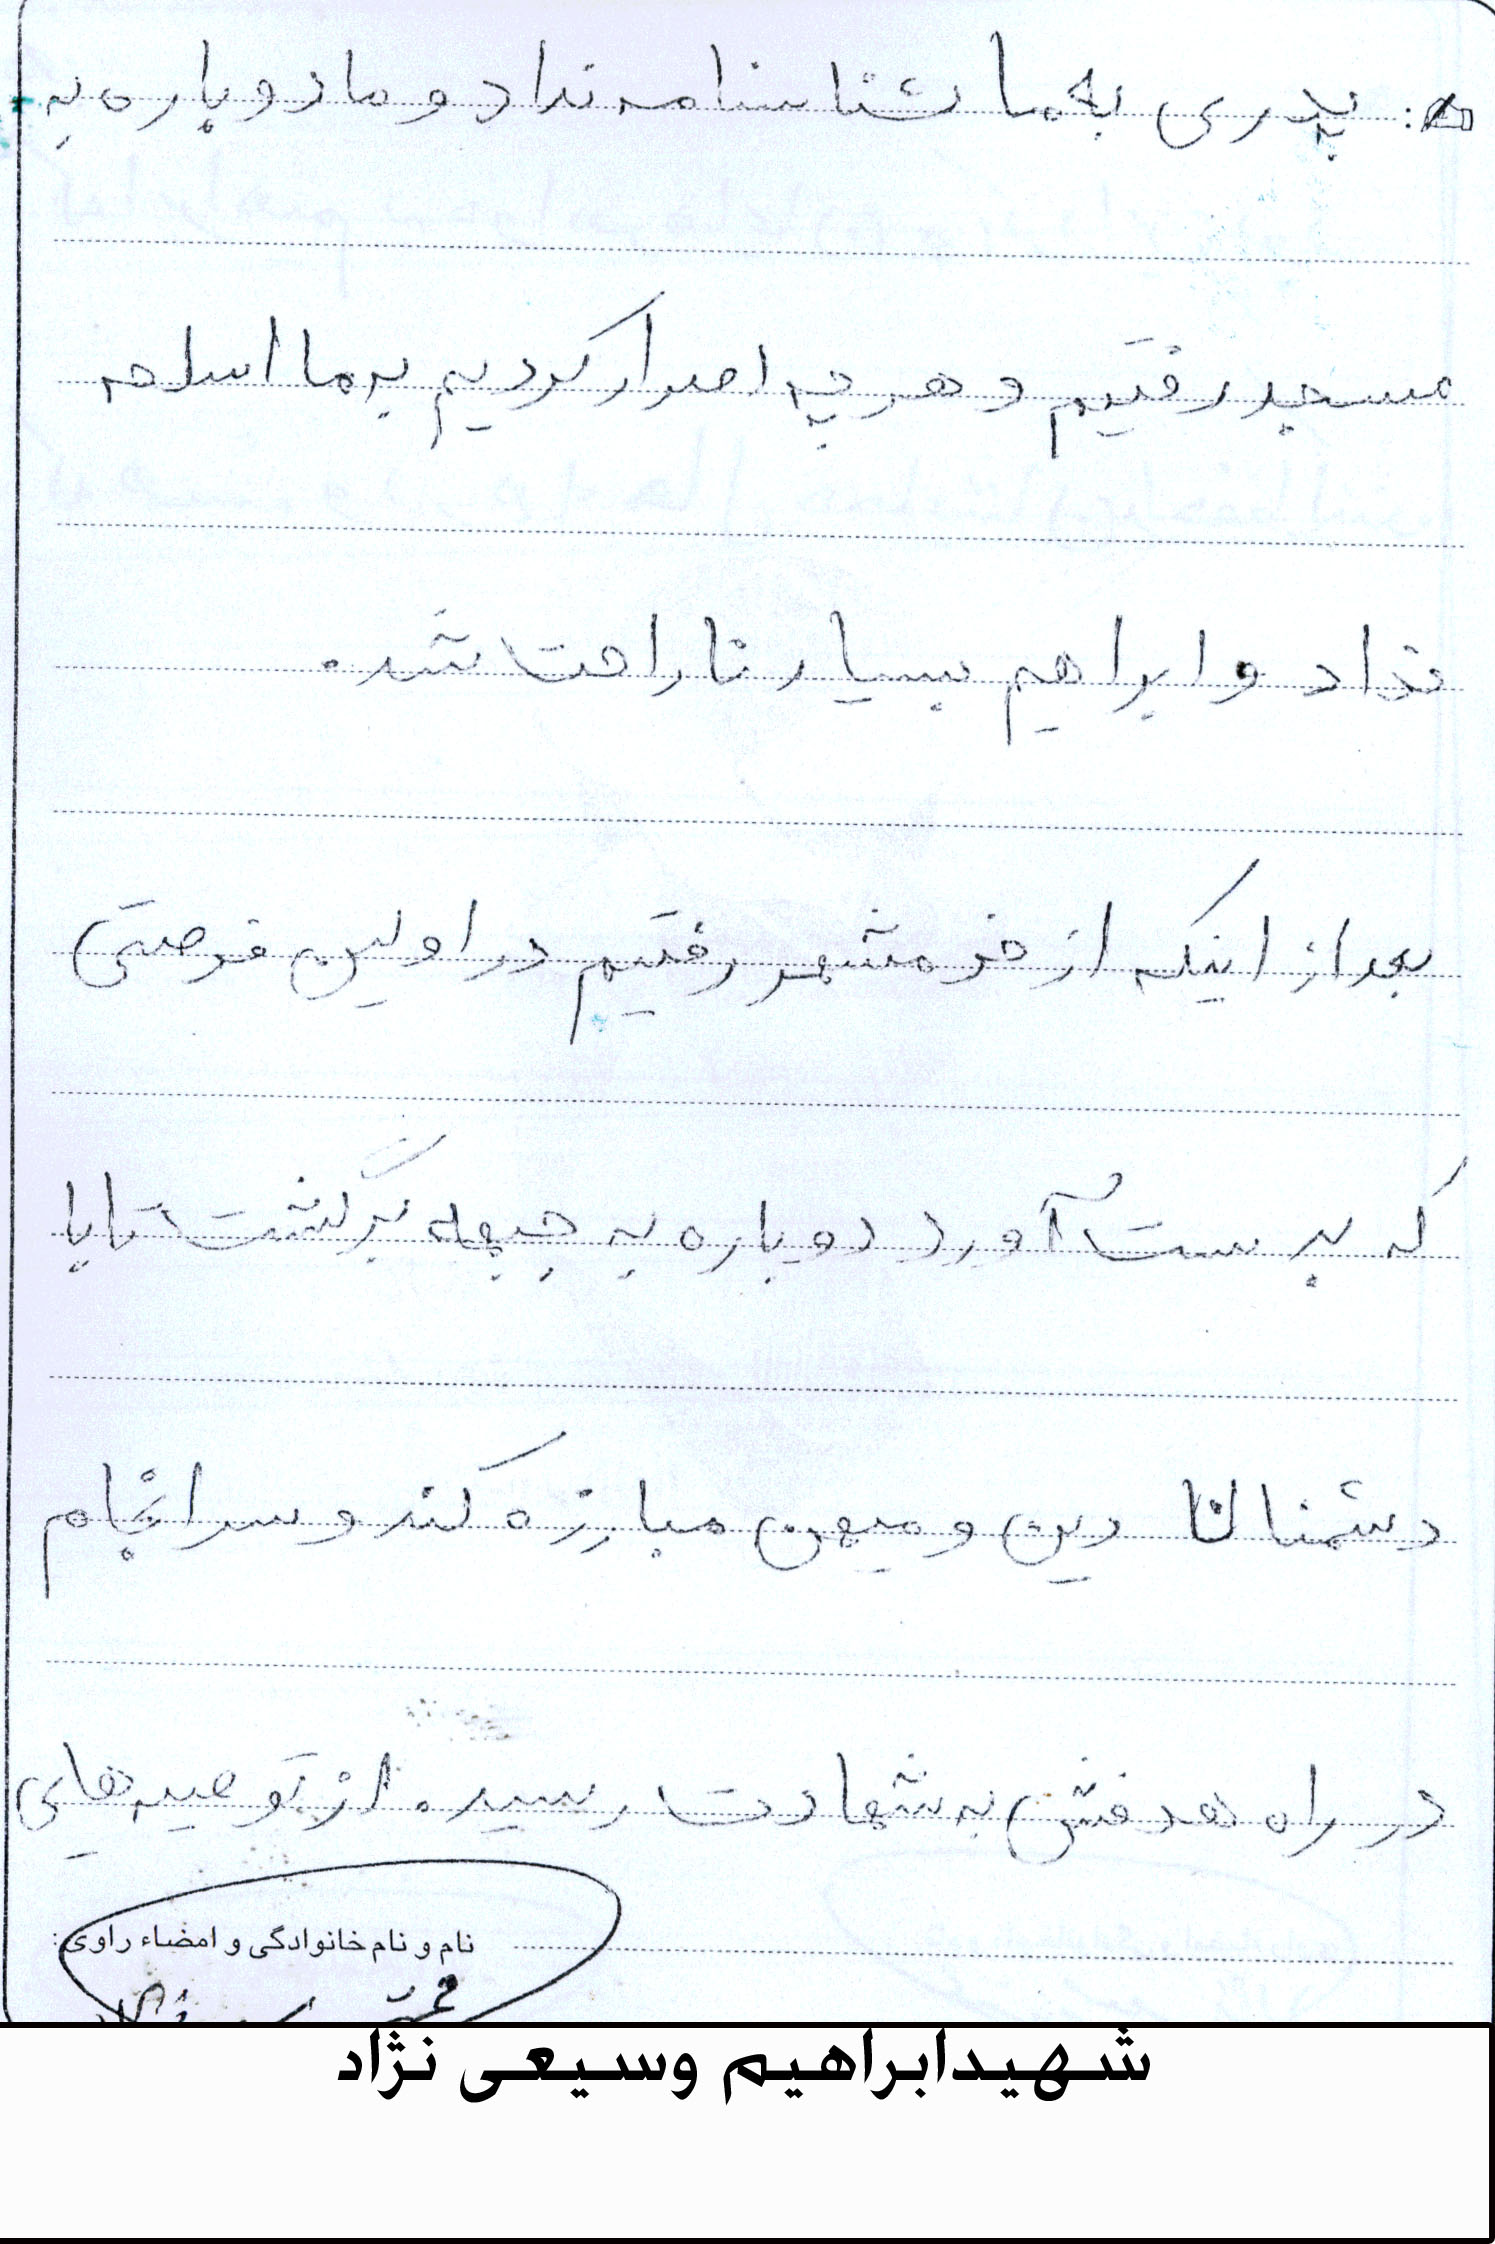 : پدری به ما شناسنامه نداد و ما دوباره به
مسجد رفتیم و هر چه اصرار کردیم به ما اسلحه
نداد و ابراهیم بسیار ناراحت شد.
بعد از اینکه از خرمشهر رفتیم در اولین فرصتی
که بدست آورد دوباره به جبهه برگشت تا با
دشمنان دین و میهن مبارزه کند و سرانجام
در راه هدفش به شهادت رسید. از توصیه های
نام و نام خانوادگی و امضاء راوی:
شهیدابراهیم وسیعی نژاد